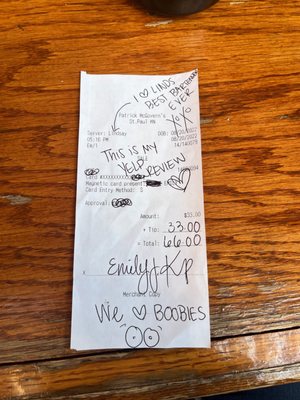 I ♡ LINDS
BEST BARTENDER
EVER
XOXO
Patrick McGovern's
St. Paul MN
Server: Lindsay
DOB: 08/20/2022
05:16 PM
08/20/2022
THIS IS MY
YELP REVIEW
SALE
Card
Magnetic card present:
Card Entry Method: S
Approval:
Amount:
$33.00
+ Tip:
33.00
= Total:
66.00
Merchant Copy
WE ♡ BOOBIES